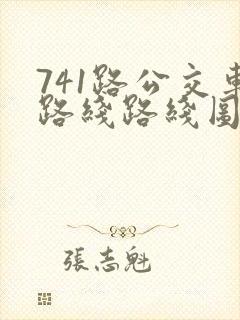 741路公交車
路綫路綫圖
張志魁